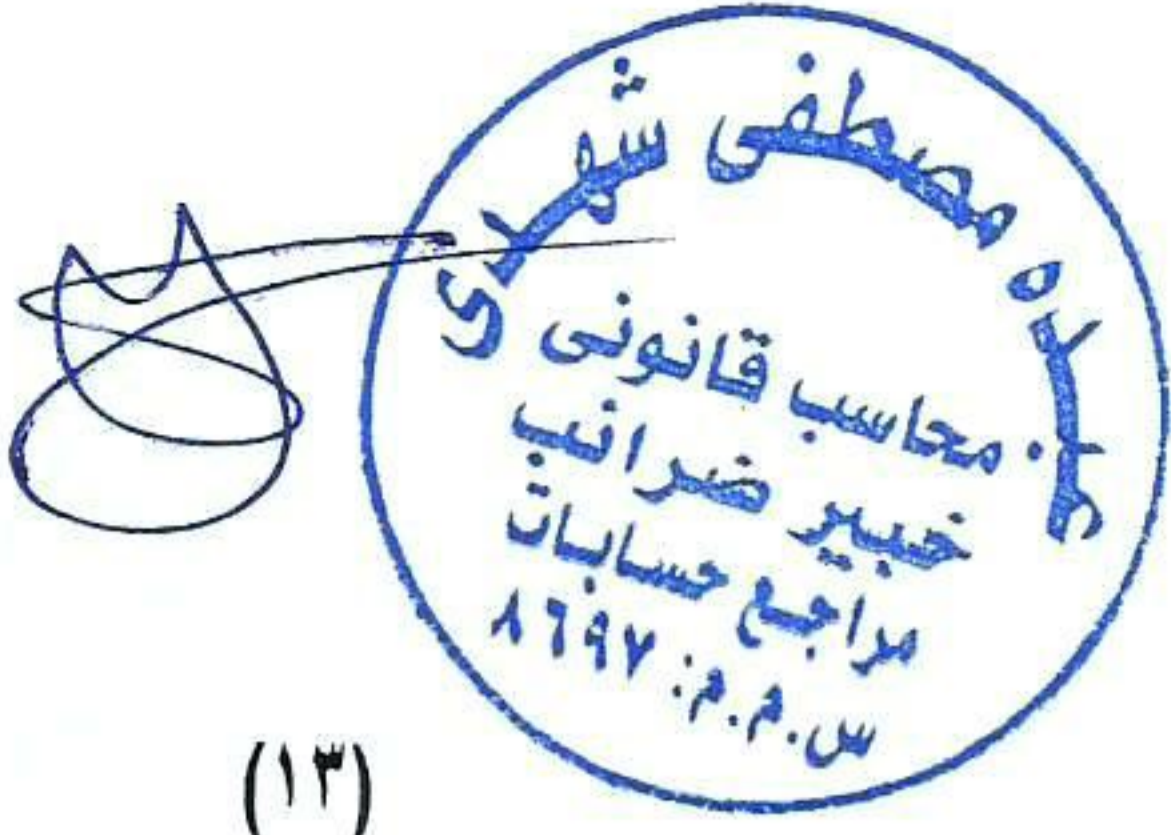 عبده مصطفى شهدى
محاسب قانونى
خبير ضرائب
مراجع حسابات
س.م.م: ٨٦٩٧
(١٣)